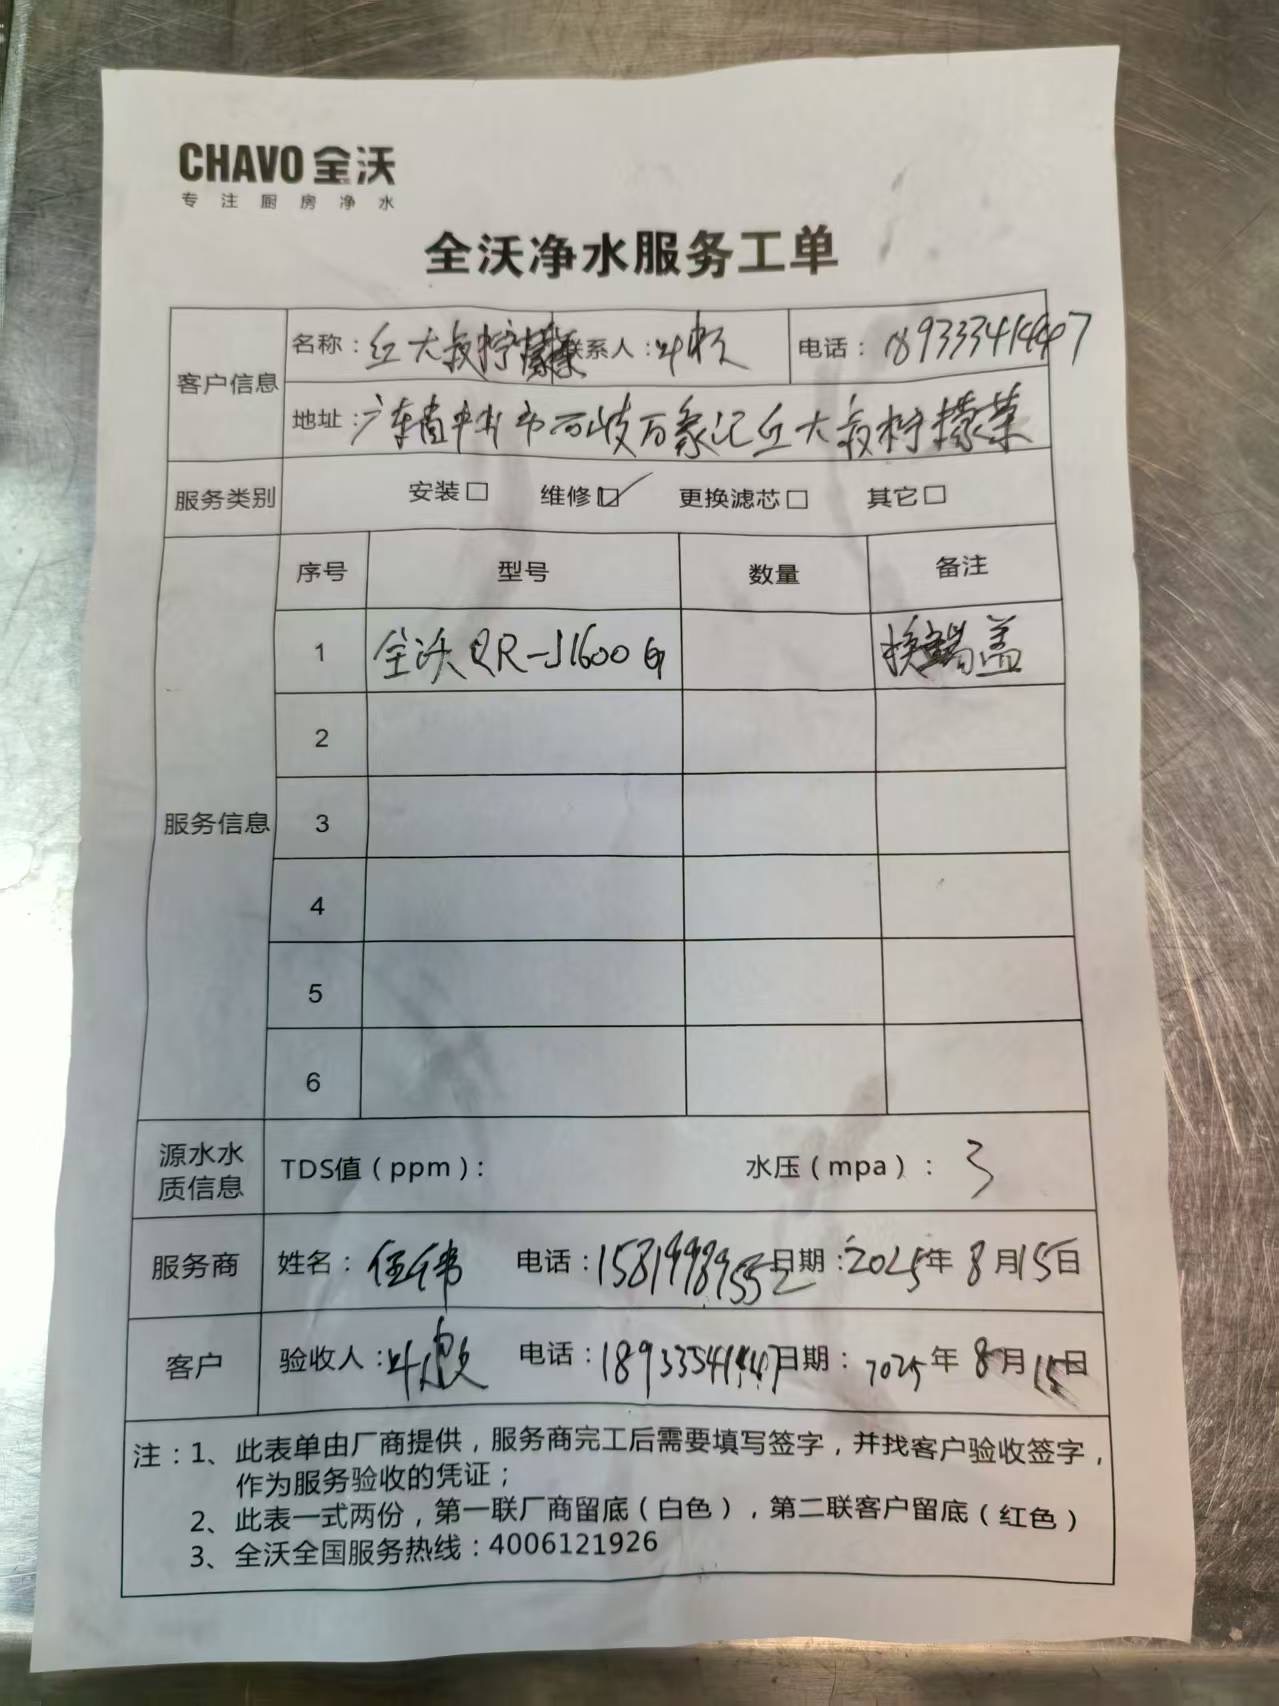 CHAVO 全沃
专注厨房净水
全沃净水服务工单
客户信息
名称：红大叔柠檬茶 联系人：叶 电话：18933341447
地址：广东省中山市石岐万象汇红大叔柠檬茶
服务类别 安装□ 维修☑ 更换滤芯□ 其它□
服务信息
序号 型号 数量 备注
1 全沃RR-J1600G 换端盖
2
3
4
5
6
源水水质信息 TDS值（ppm）： 水压（mpa）：3
服务商 姓名：任伟 电话：15819989552 日期：2025年8月15日
客户 验收人：叶 电话：18933341447 日期：2025年8月15日
注：1、此表单由厂商提供，服务商完工后需要填写签字，并找客户验收签字，
作为服务验收的凭证；
2、此表一式两份，第一联厂商留底（白色），第二联客户留底（红色）
3、全沃全国服务热线：4006121926